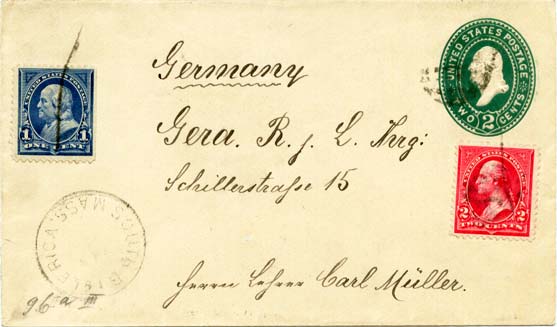 UNITED STATES POSTAGE
TWO 2 CENTS
Germany
1 1
ONE CENT
Gera. R. j. L.
Schillerstraße 15
UNITED STATES POSTAGE
2 2
TWO CENTS
SOUTH BILLERICA MASS.
Herrn Lehrer Carl Müller.
96a III